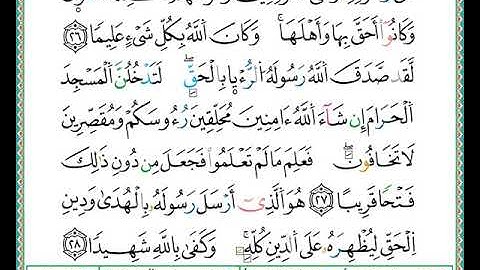 وَكَانُوٓا۟ أَحَقَّ بِهَا وَأَهْلَهَا ۚ وَكَانَ ٱللَّهُ بِكُلِّ شَىْءٍ عَلِيمًا ٢٦
لَّقَدْ صَدَقَ ٱللَّهُ رَسُولَهُ ٱلرُّءْيَا بِٱلْحَقِّ ۖ لَتَدْخُلُنَّ ٱلْمَسْجِدَ
ٱلْحَرَامَ إِن شَآءَ ٱللَّهُ ءَامِنِينَ مُحَلِّقِينَ رُءُوسَكُمْ وَمُقَصِّرِينَ
لَا تَخَافُونَ ۖ فَعَلِمَ مَا لَمْ تَعْلَمُوا۟ فَجَعَلَ مِن دُونِ ذَٰلِكَ
فَتْحًا قَرِيبًا ٢٧ هُوَ ٱلَّذِىٓ أَرْسَلَ رَسُولَهُۥ بِٱلْهُدَىٰ وَدِينِ
ٱلْحَقِّ لِيُظْهِرَهُۥ عَلَى ٱلدِّينِ كُلِّهِۦ ۚ وَكَفَىٰ بِٱللَّهِ شَهِيدًا ٢٨